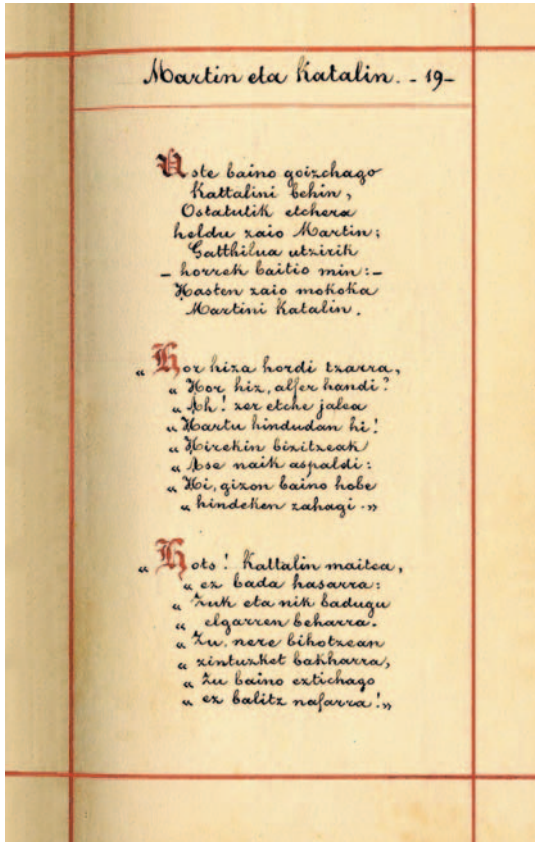 Martin eta Katalin. - 19-
Uste baino goizchago
Kattalini behin,
Ostatutik etchera
heldu zaio Martin;
Gatthilua utzirik
- horrek baitio min: -
Hasten zaio mokoka
Martini Katalin.
„ Hor hiza hordi tzarra,
„ Hor hiz, alfer handi?
„ Ah! zer etche jalea
„ Hartu hindudan hi!
„ Hirekin bizitzeak
„ Ase naik aspaldi:
„ Hi, gizon baino hobe
„ hindeken zahagi.„
„ Hots! Kattalin maitea,
„ ez bada hasarra:
„ Zuk eta nik badugu
„ elgarren beharra.
„ Zu, nere bihotzean
„ zintuzket bakharra,
„ Zu baino eztichago
„ ez balitz nafarra!„